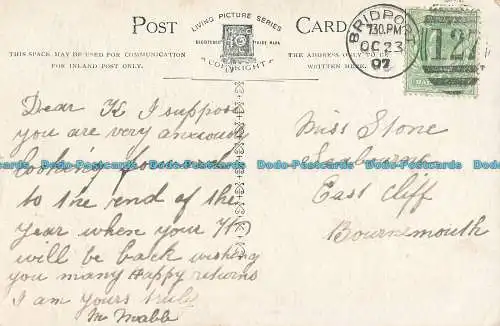 POST CARD
LIVING PICTURE SERIES
REGISTERED TRADE MARK
COPYRIGHT
THIS SPACE MAY BE USED FOR COMMUNICATION
FOR INLAND POST ONLY.
THE ADDRESS ONLY TO BE
WRITTEN HERE.
BRIDPORT
7.30PM
OC 23
07
Dear K I suppose
you are very anxious
looking forward
to the end of the
year when your
will be back wishing
you many Happy returns
I am yours truly
M Mabb
Miss Stone
East Cliff
Bournemouth
Dodo-Postcards Dodo-Postcards Dodo-Postcards Dodo-Postcards